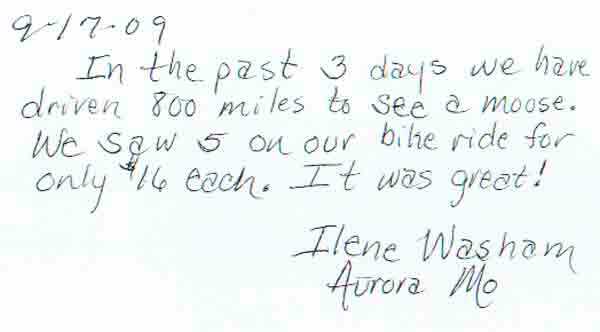 9-17-09
In the past 3 days we have
driven 800 miles to see a moose.
We saw 5 on our bike ride for
only $16 each. It was great!
Ilene Washam
Aurora Mo